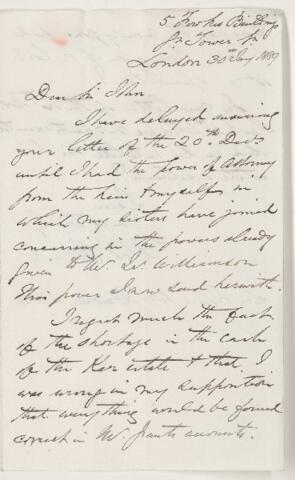 5 Fowkes Buildings
Gt Tower St
London 30th 1889
Dear Sir John
I have delayed answering
your letter of the 20th Decr
until I had the power of Attorney
from the heirs & myself in
which my sisters have joined
concurring in the powers already
given to Mr Williamson
this power I now send herewith.
I regret much the fact
of the shortage in the cash
of the Ker estate & that I
was wrong in my supposition
that everything would be found
correct in Mr Grants accounts.